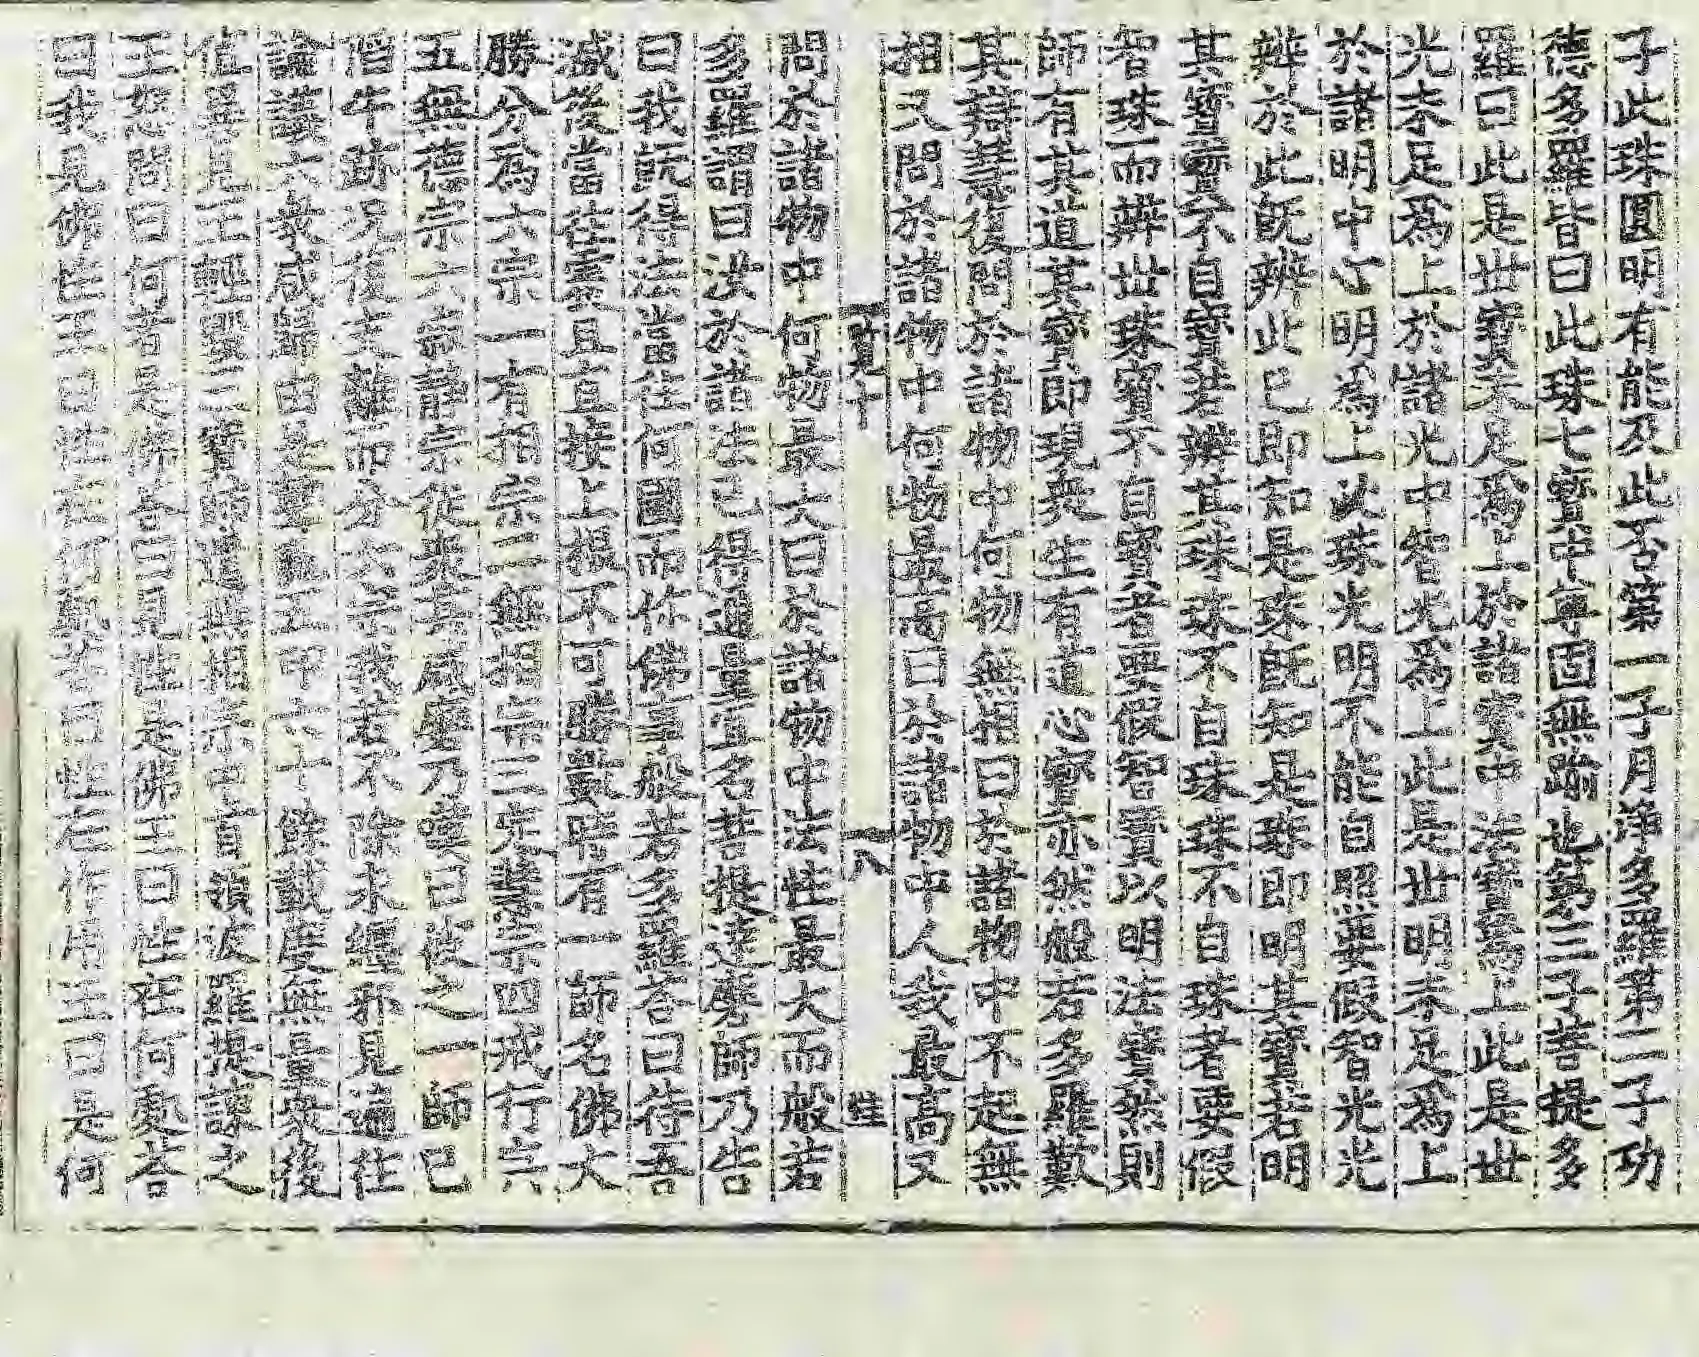 子此珠圓明有能及此否第一子月淨多羅第二子功
德多羅皆曰此珠七寶中尊固無踰也第三子菩提多
羅曰此是世寶未足爲上於諸寶中法寶爲上此是世
光未足爲上於諸光中智光爲上此是世明未足爲上
於諸明中心明爲上此珠光明不能自照要假智光光
辨於此既辨此已即知是珠既知是珠即明其寶若明
其寶寶不自寶若辨其珠珠不自珠珠不自珠者要假
智珠而辨世珠寶不自寶者要假智寶以明法寶然則
師有其道其寶即現衆生有道心寶亦然般若多羅歎
其辯慧復問於諸物中何物無相曰於諸物中不起無
相又問於諸物中何物最高曰於諸物中人我最高又
問於諸物中何物最大曰於諸物中法性最大而般若
多羅謂曰汝於諸法已得通量宜名菩提達磨師乃告
曰我既得法當往何國而作佛事般若多羅答曰待吾
滅後當往震旦直接上根不可勝數時有二師名佛大
勝分為六宗一有相宗二無相宗三定慧宗四戒行宗
五無得宗六寂靜宗從來其威磨乃嘆曰彼之一師已
陷牛跡况復支離而分六宗我若不除永纏邪見遍往
論議六衆咸歸由是聲馳五印六十餘載度無量衆後
值異見王輕毀三寶師遣無相宗中首領波羅提諫之
王怒問曰何者是佛答曰見性是佛王曰性在何處答
曰我見佛性王曰性在何處答曰性在作用王曰是何